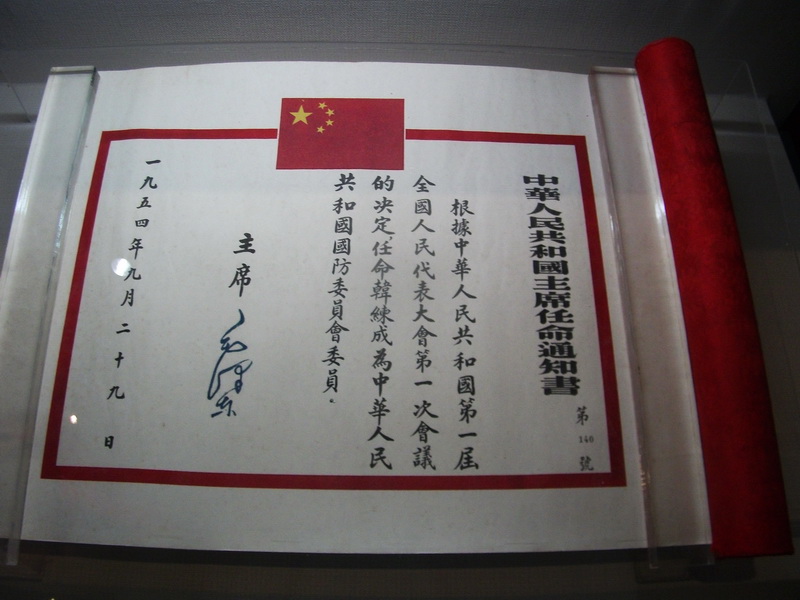 中華人民共和國主席任命通知書
第140號
根據中華人民共和國第一屆
全國人民代表大會第一次會議
的决定，任命韓練成為中華人民
共和國國防委員會委員。
主席 毛澤东
一九五四年九月二十九日